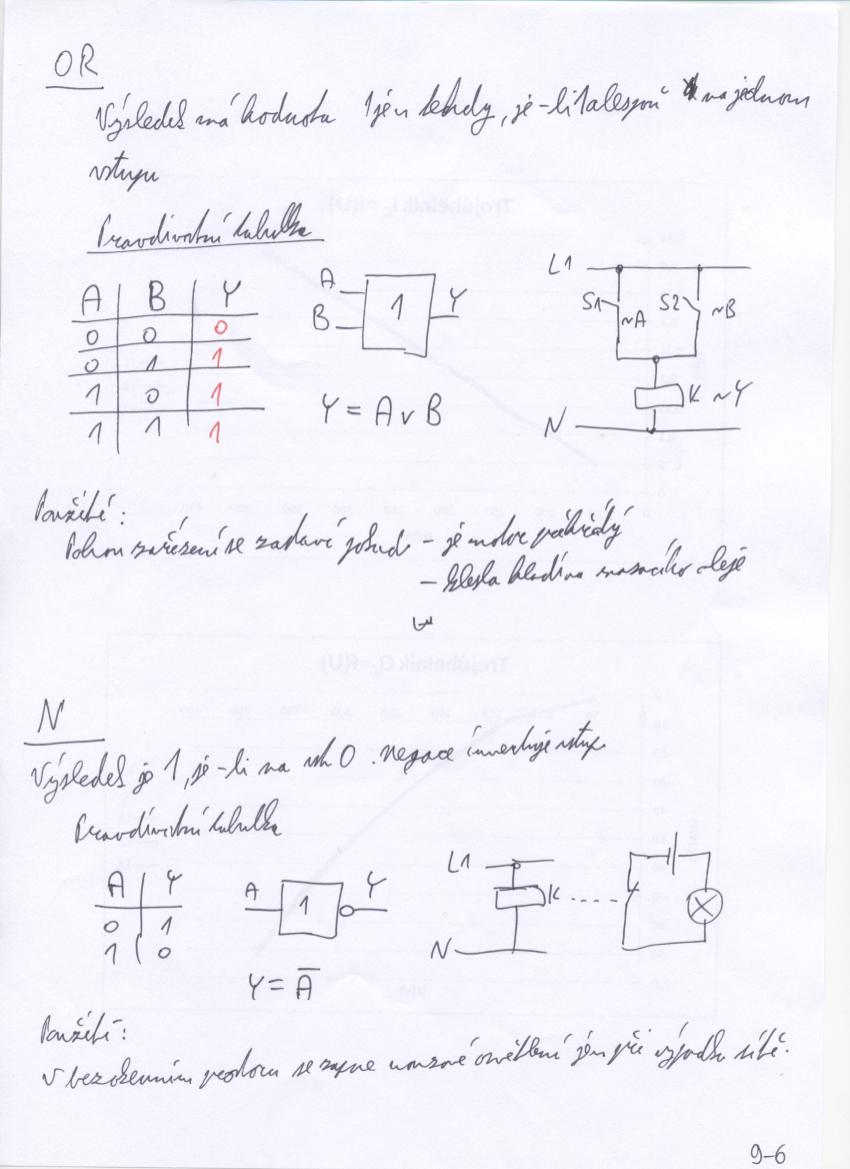 OR
Výsledek má hodnotu 1 jen tehdy, je-li 1 alespoň na jednom
vstupu
Pravdivostní tabulka
A B Y
0 0 0
0 1 1
1 0 1
1 1 1
A
B
1
Y
Y = A v B
L1
S1 ~A S2 ~B
K ~Y
N
Použití:
Pohon zařízení se zastaví pokud - je motor přehřátý
- klesla hladina mazacího oleje
N
Výsledek je 1, je-li na vst. 0. negace invertuje vstup
Pravdivostní tabulka
A Y
0 1
1 0
A 1 Y
Y = A̅
L1
K
N
Použití:
V bezokenním prostoru se zapne nouzové osvětlení jen při výpadku sítě.
9-6